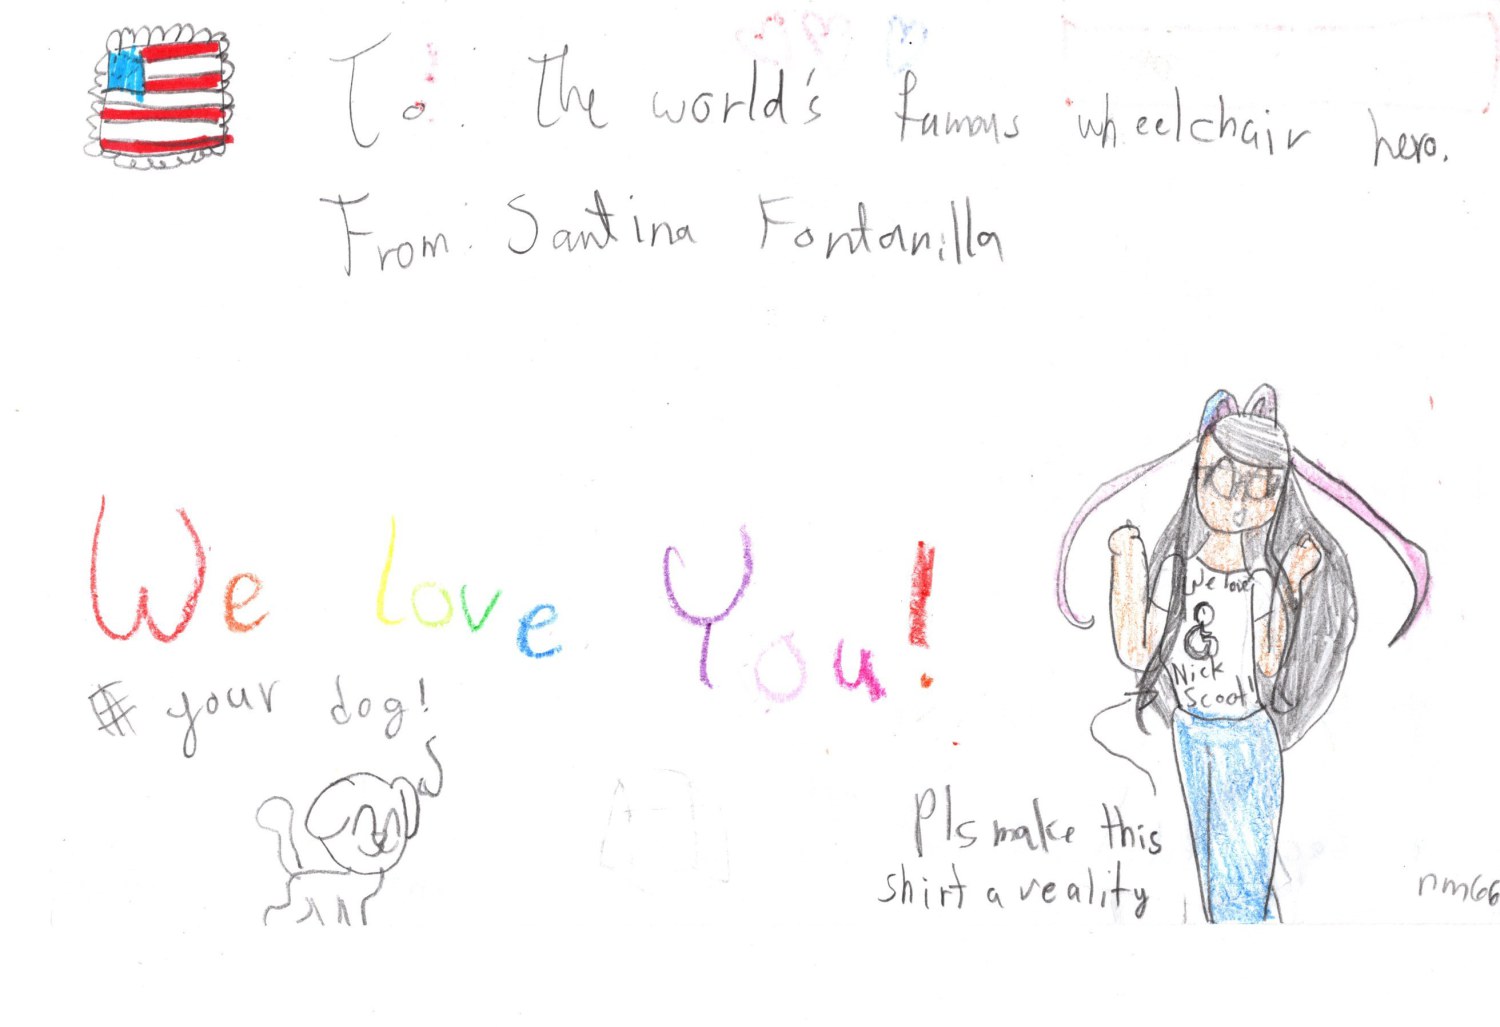 To: The world's famous wheelchair hero.
From: Santina Fontanilla
We love You!
# your dog!
We love
Nick
Scoot!
Pls make this
shirt a reality